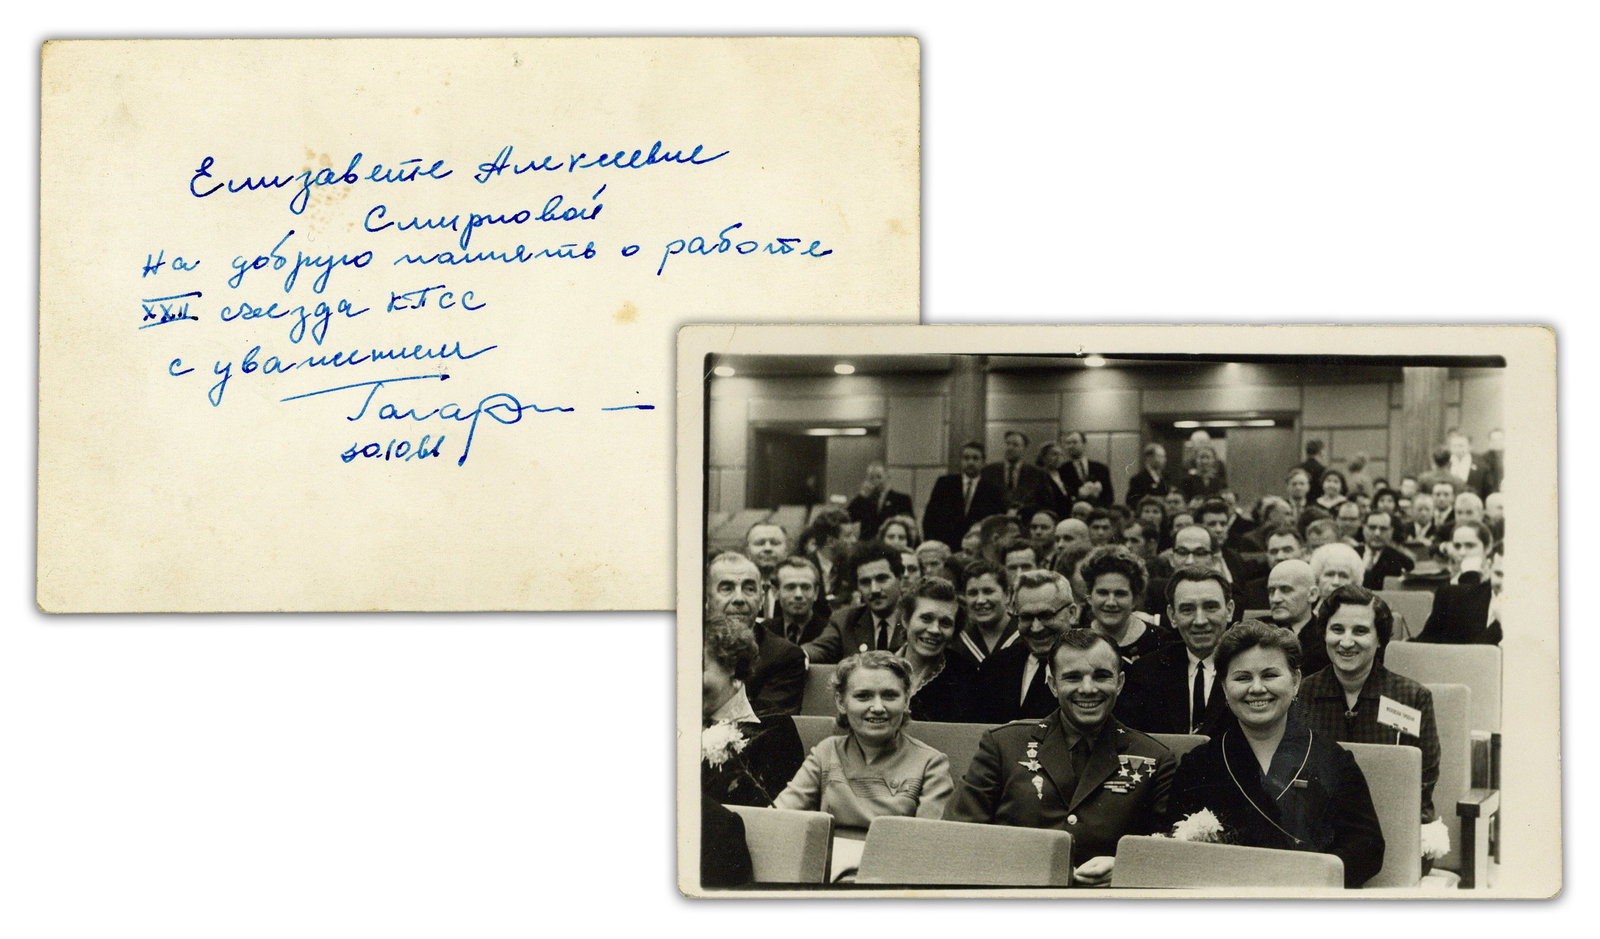 Елизавете Алексеевне
Смирновой
На добрую память о работе
XXII съезда КПСС
с уважением
Гагарин
30.10.61